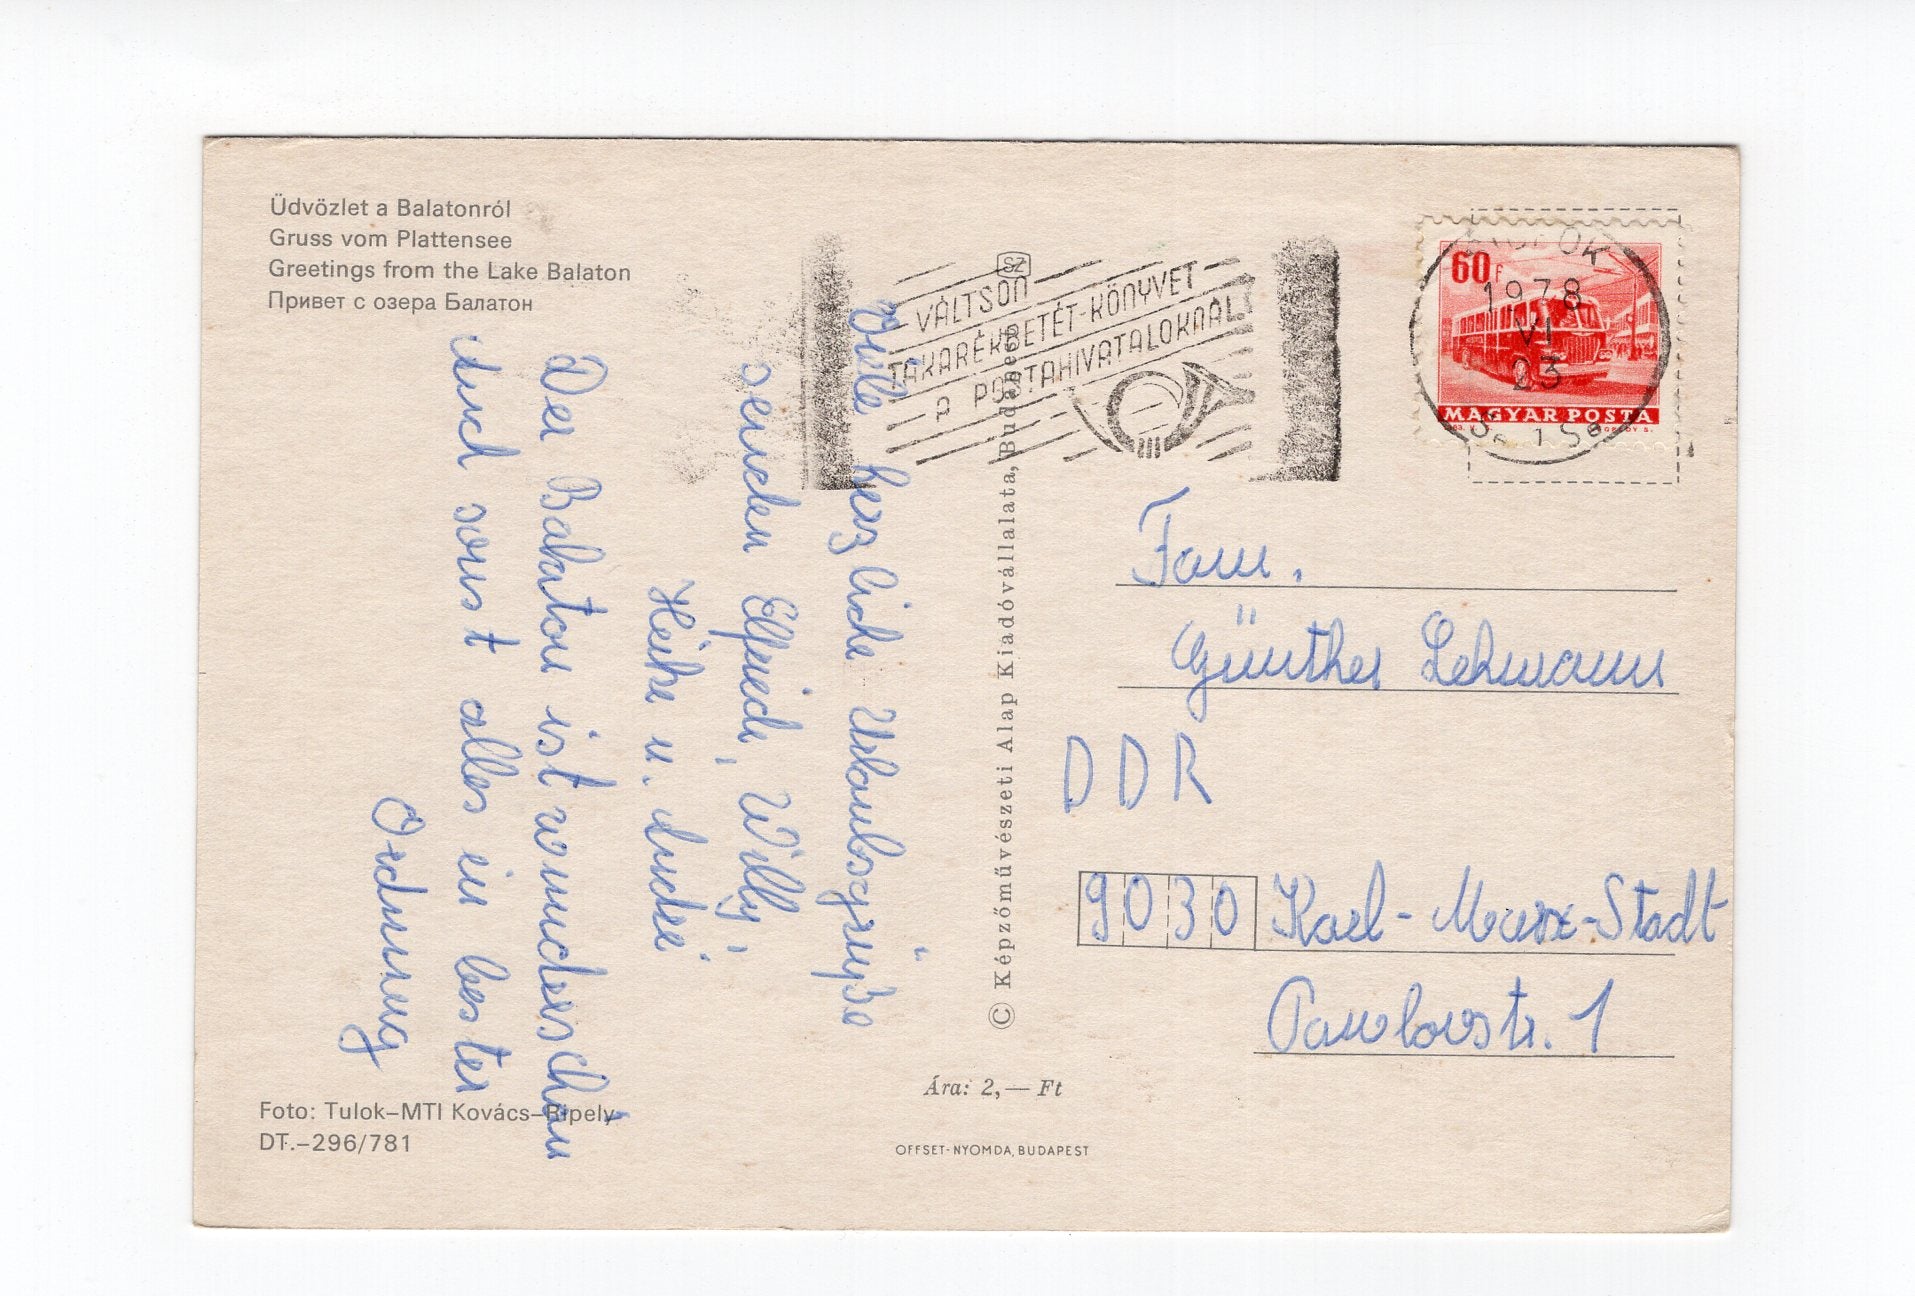 Üdvözlet a Balatonról
Gruss vom Plattensee
Greetings from the Lake Balaton
Привет с озера Балатон
Viele herzliche Urlaubsgrüße
senden Elfriede, Willy,
Heike u. André
Der Balaton ist wunderschön
und sonst alles in bester
Ordnung
Foto: Tulok–MTI Kovács–Ripely
DT.–296/781
SZ
VÁLTSON
TAKARÉKBETÉT-KÖNYVET
A POSTAHIVATALOKNÁL!
© Képzőművészeti Alap Kiadóvállalata, Budapest
Ára: 2,— Ft
OFFSET-NYOMDA, BUDAPEST
60f
MAGYAR POSTA
SIÓFOK
1978
VI
23
Fam.
Günther Lehmann
DDR
9030 Karl-Marx-Stadt
Pawlowstr. 1